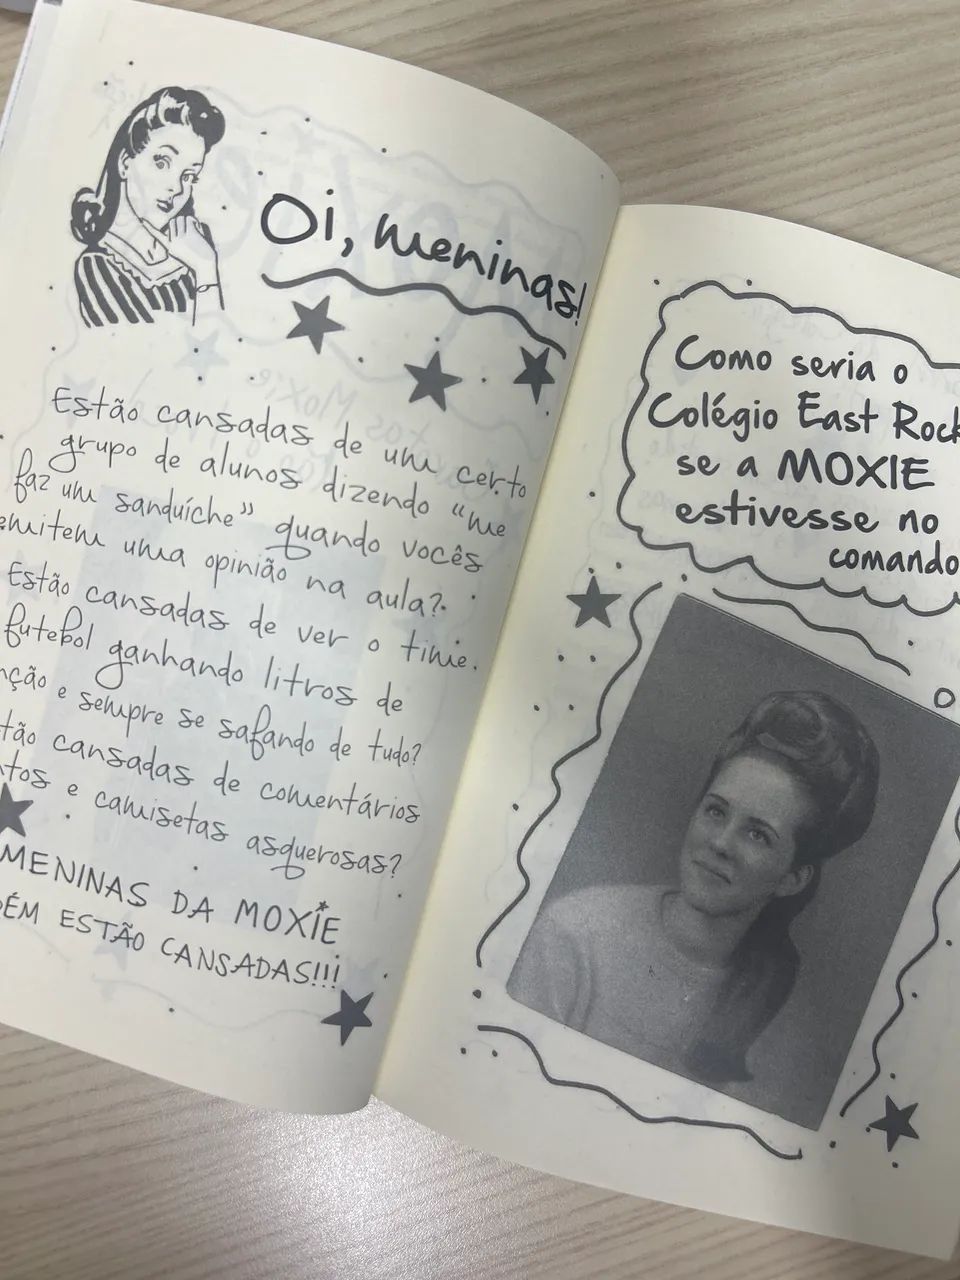 Oi, meninas!
Estão cansadas de um certo
grupo de alunos dizendo "me
faz um sanduíche" quando vocês
emitem uma opinião na aula?
Estão cansadas de ver o time
futebol ganhando litros de
e sempre se safando de tudo?
cansadas de comentários
e camisetas asquerosas?
MENINAS DA MOXIE
ESTÃO CANSADAS!!!
Como seria o
Colégio East Rock
se a MOXIE
estivesse no
comando